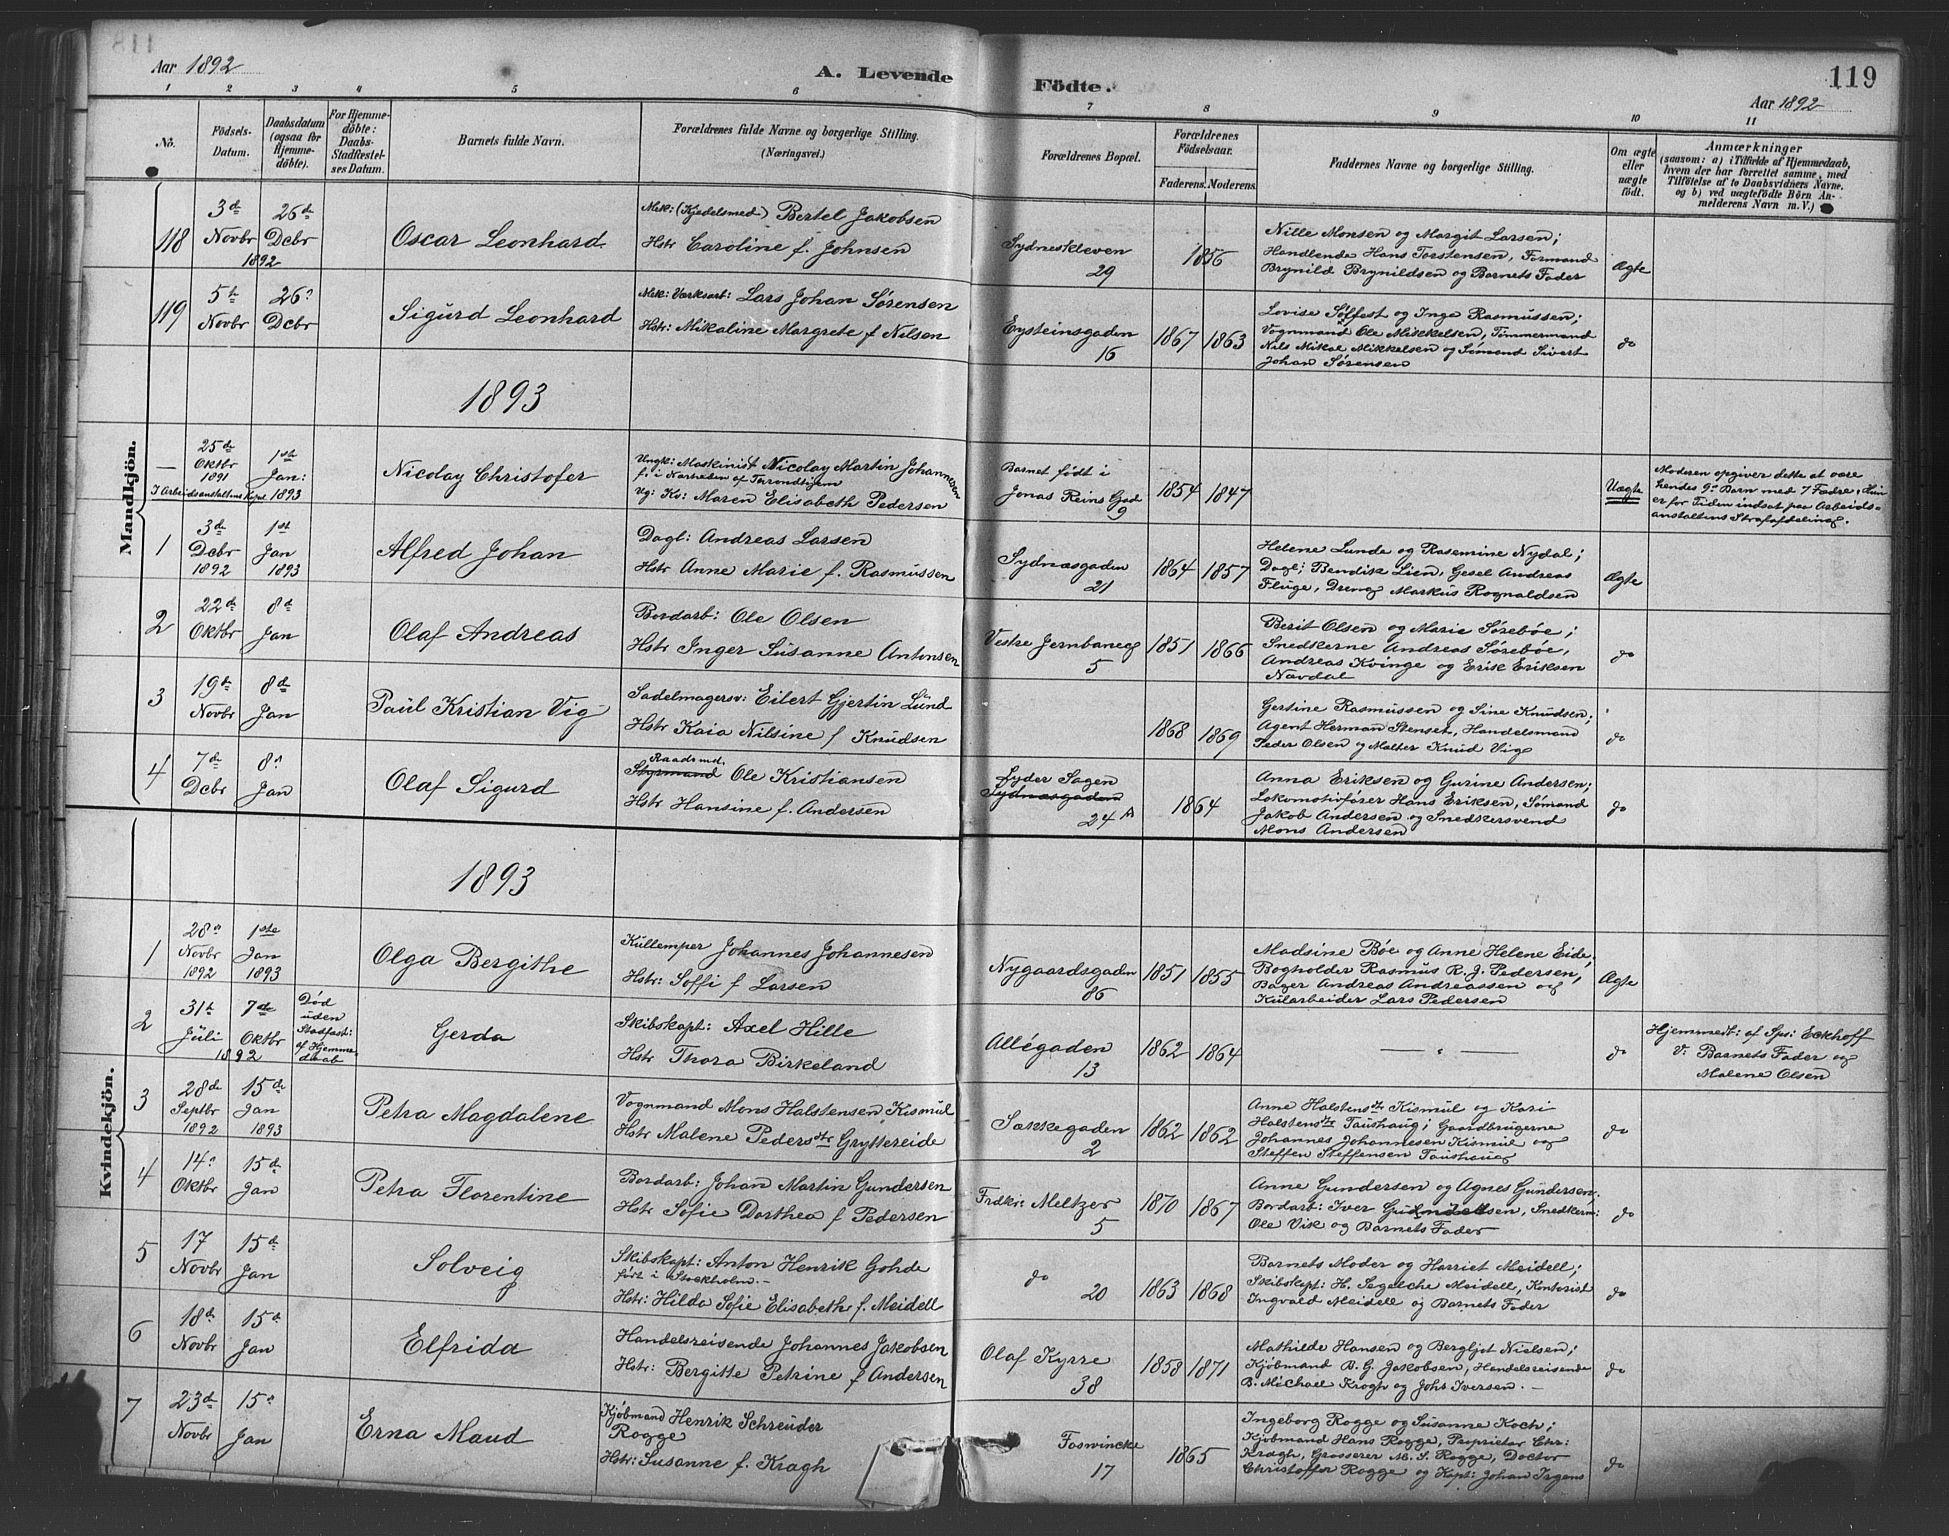 Aar 1892
A. Levende Födte.
119
Aar 1892
1 2 3 4 5 6 7 8 9 10 11
No.
Födsels-
Datum.
Daabsdatum
(ogsaa for
Hjemme-
döbte).
For Hjemme-
döbte:
Daabs-
Stadfæstel-
ses Datum.
Barnets fulde Navn.
Forældrenes fulde Navne og borgerlige Stilling.
(Næringsvei.)
Forældrenes Bopæl.
Forældrenes
Födselsaar.
Faderens. Moderens.
Faddernes Navne og borgerlige Stilling.
Om ægte
eller
uægte
födt.
Anmærkninger
(saasom: a) i Tilfælde af Hjemmedaab,
hvem der har forrettet samme, med
Tilföielse af to Daabsvidners Navne,
og b) ved uægtefödte Börn An-
melderens Navn m.V.)
Mandkjön.
118
3d
Novbr
26d
Dcbr
1892
Oscar Leonhard
Mek: (Kjedelsmed) Bertel Jakobsen
Hstr Caroline f. Johnsen
Sydneskleven
29
1856
Nille Monsen og Margit Larsen;
Handlende Hans Torstensen, Formand
Brynild Brynildsen og Barnets Fader
Ægte
119
5te
Novbr
26d
Dcbr
Sigurd Leonhard
Mek: Værksarb: Lars Johan Sørensen
Hstr: Mikaline Margrete f Nilsen
Eysteinsgaden
16
1867 1863
Lovise Solfest og Inge Rasmussen;
Vognmand Ole Mikkelsen, Tømmermand
Nils Mikal Mikkelsen og Sømand Sivert
Johan Sørensen
do
1893
—
25de
Oktbr
1891
1ste
Jan:
1893
I Arbeidsanstaltens Kapel
Nicolay Christofer
Ungk: Maskinist Nicolay Martin Johannesen
f. i Nærheden af Throndhjem
Ug: Kv: Maren Elisabeth Pedersen
Barnet født i
Jonas Reins Gad
9
1854 1847
Uægte
Moderen opgiver dette at være
hendes 9d Barn med 7 Fædre. Hun
er for Tiden indsat paa Arbeids-
anstaltens Strafafdeling.
1
3d
Dcbr
1892
1st
Jan
1893
Alfred Johan
Dagl: Andreas Larsen
Hstr Anne Marie f. Rasmussen
Sydnæsgaden
21
1864 1857
Helene Lunde og Rasemine Nydal;
Dagl: Bendik Lien, Gesel Andreas
Fluge, Dreng Markus Rognaldsen
Ægte
2
22de
Oktbr
8d
Jan
Olaf Andreas
Bordarb: Ole Olsen
Hstr Inger Susanne Antonsen
Vestre Jernbaneg
5
1851 1866
Berit Olsen og Marie Sørebøe;
Snedkerne Andreas Sørebøe,
Andreas Kvinge og Erik Eriksen
Navdal
do
3
19de
Novbr
8de
Jan
Paul Kristian Vig
Sadelmagersv: Eilert Gjertin Lund
Hstr Kaia Nilsine f Knudsen
1868 1869
Gertine Rasmussen og Sine Knudsen;
Agent Herman Stenset, Handelsmand
Peder Olsen og Malter Knud Vig
do
4
7de
Dcbr
8d
Jan
Olaf Sigurd
Baadsmd.
Styrmand Ole Kristiansen
Hstr Hansine f. Andersen
Lyder Sagen
Sydnæsgaden
24 A
1864
Anna Eriksen og Gurine Andersen;
Lokomotivfører Hans Eriksen, Sømand
Jakob Andersen og Snedkersvend
Mons Andersen
do
1893
Kvindekjön.
1
28d
Novbr
1892
1ste
Jan
1893
Olga Bergithe
Kullemper Johannes Johannesen
Hstr: Soffi f Larsen
Nygaardsgaden
86
1851 1855
Madsine Bøe og Anne Helene Eide;
Bogholder Rasmus R. J. Pedersen,
Bager Andreas Andreassen og
Kularbeider Lars Pedersen
Ægte
2
31te
Juli
7de
Oktbr
1892
Død
uden
Stadfæst:
af Hjemme-
daab
Gerda
Skibskapt: Axel Hille
Hstr Thora Birkeland
Allégaden
13
1862 1864
— " —
do
Hjemmedt: af Sps: Eckhoff
V: Barnets Fader og
Malene Olsen
3
28de
Septbr
1892
15de
Jan
1893
Petra Magdalene
Vognmand Mons Halstensen Kismul
Hstr Malene Pedersdtr Gryttereide
Sækkegaden
2
1862 1862
Anne Halstensdtr Kismul og Kari
Halstensdtr Taushaug; Gaardbrugerne
Johannes Johannesen Kismul og
Steffen Steffensen Taushaug
do
4
14d
Oktbr
15de
Jan
Petra Florentine
Bordarb: Johan Martin Gundersen
Hstr Sofie Dorthea f Pedersen
Frdkr: Meltzer
5
1870 1867
Anne Gundersen og Agnes Gundersen;
Bordarb: Iver Gundersen, Snedkerm:
Ole Vik og Barnets Fader
do
5
17
Novbr
15de
Jan
Solveig
Skibskapt: Anton Henrik Gohde
født i Stockholm. —
Hstr: Hilda Sofie Elisabeth f. Meidell
do
20
1863 1868
Barnets Moder og Harriet Meidell;
Skibskapt: H. Segelche Meidell, Kontorist
Ingvald Meidell og Barnets Fader
do
6
18de
Novbr
15d
Jan
Elfrida
Handelsreisende Johannes Jakobsen
Hstr: Bergitte Petrine f Andersen
Olaf Kyrre
38
1858 1871
Mathilde Hansen og Bergljot Nielsen;
Kjøbmand B. G. Jakobsen, Handelsreisende
B. Michael Krogh og Johs Iversen. —
do
7
23de
Novbr
15d
Jan
Erna Maud
Kjøbmand Henrik Schreuder
Rogge
Hstr: Susanne f. Kragh
Foswincke
17
1865
Ingeborg Rogge og Susanne Koch;
Kjøbmand Hans Rogge, Proprietær Chr:
Kragh, Grosserer M. S. Rogge, Doctor
Christoffer Rogge og Kapt: Johan Irgens
do